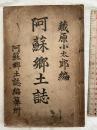 蔵原小太郎編
阿蘇郷土誌
阿蘇郷土誌編纂所